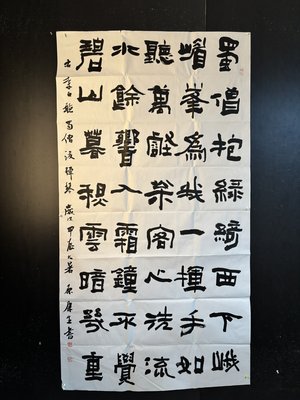 蜀僧抱綠綺西下峨
嵋峯為我一揮手如
聽萬壑松客心洗流
水餘響入霜鐘不覺
碧山暮秋雲暗幾重
李白聽蜀僧濬彈琴 歲次甲辰大暑 書